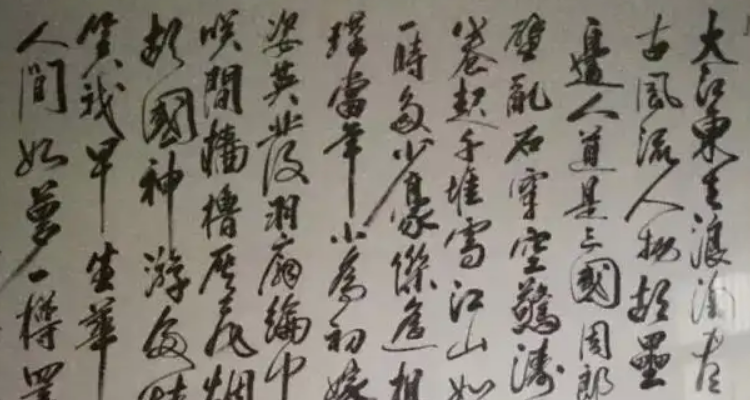 大江東去浪淘尽
古風流人物故壘
邊人道是三國周郎
壁亂石穿空驚濤
卷起千堆雪江山如
一時多少豪傑遙想
瑾當年小喬初嫁
姿英發羽扇綸巾
笑間檣櫓灰飛烟
故國神游多情
笑我早生華
人間如夢一樽